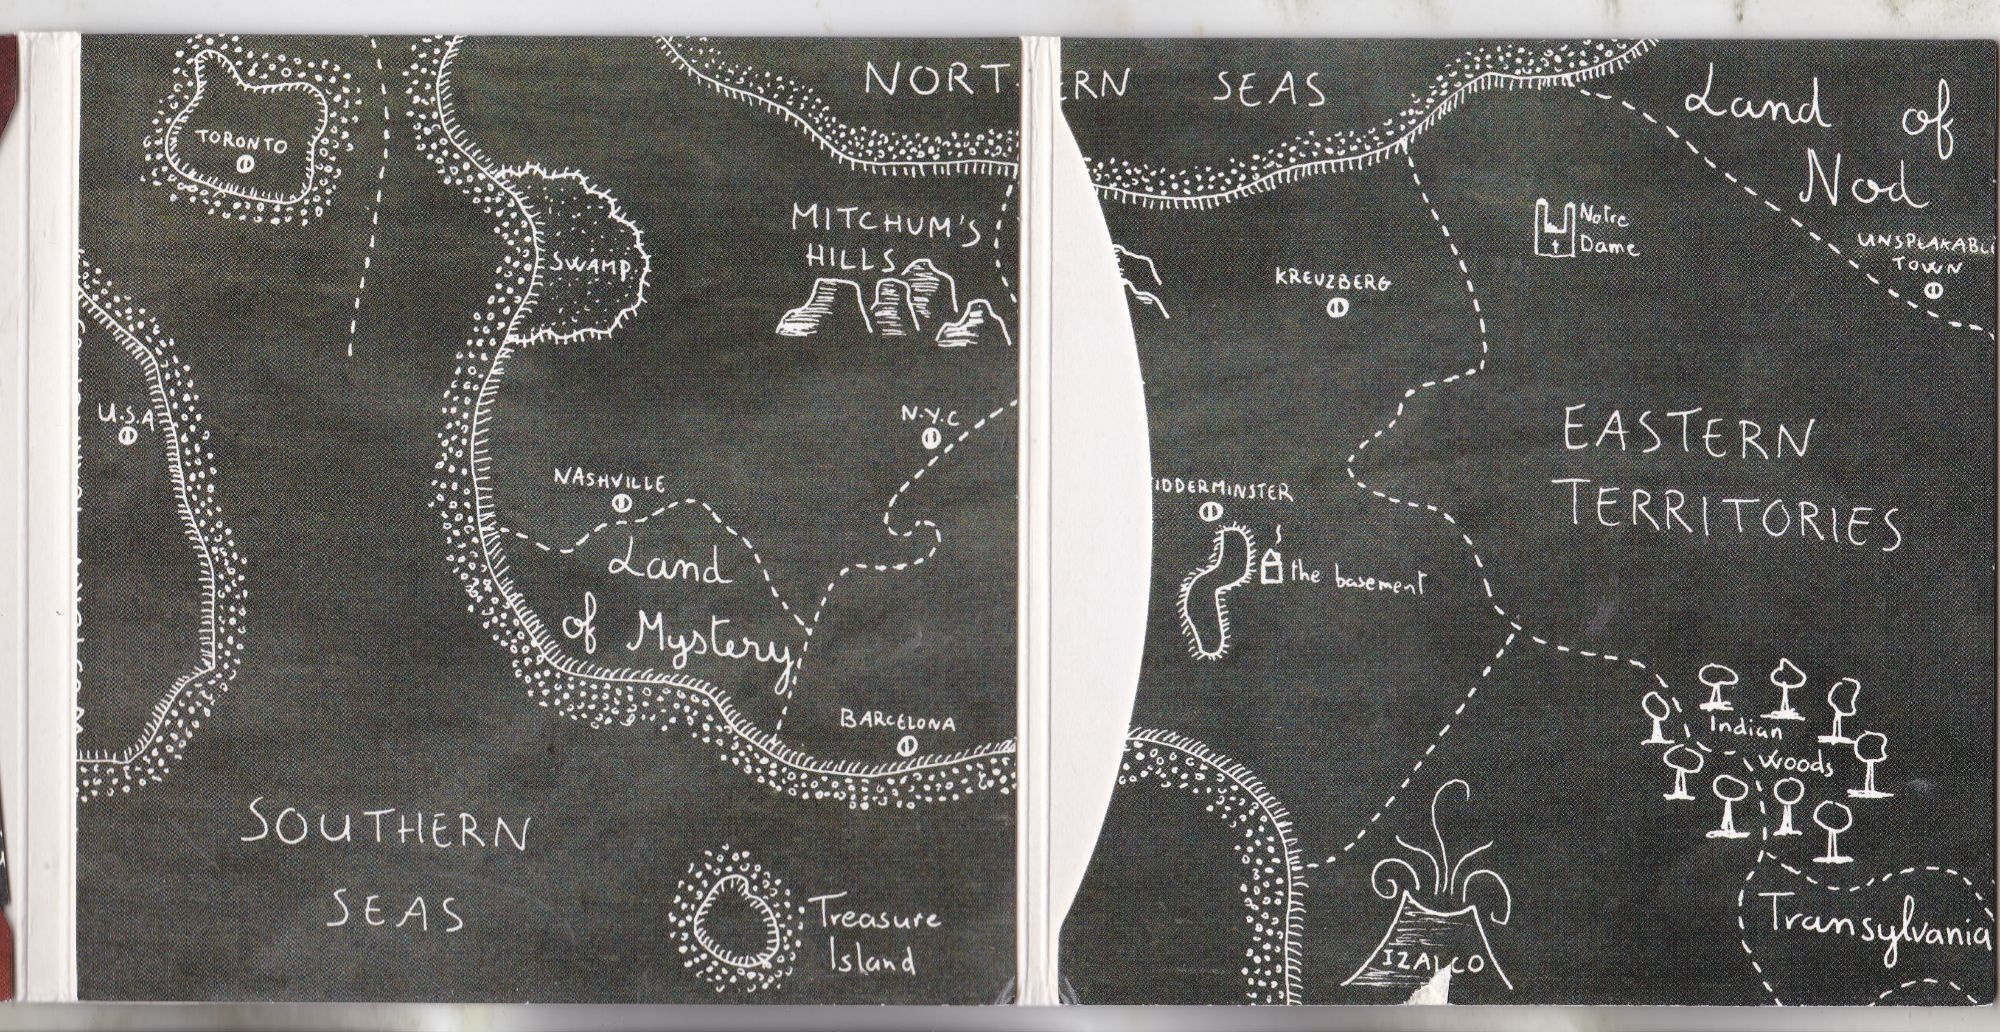 NORT
ERN SEAS
Land of
Nod
TORONTO
Notre
Dame
MITCHUM'S
HILLS
UNSPEAKABLE
TOWN
SWAMP
KREUZBERG
U.S.A
N.Y.C
EASTERN
TERRITORIES
NASHVILLE
IDDERMINSTER
Land
of Mystery
the basement
BARCELONA
Indian
Woods
SOUTHERN
SEAS
Treasure
Island
Transylvania
IZALCO